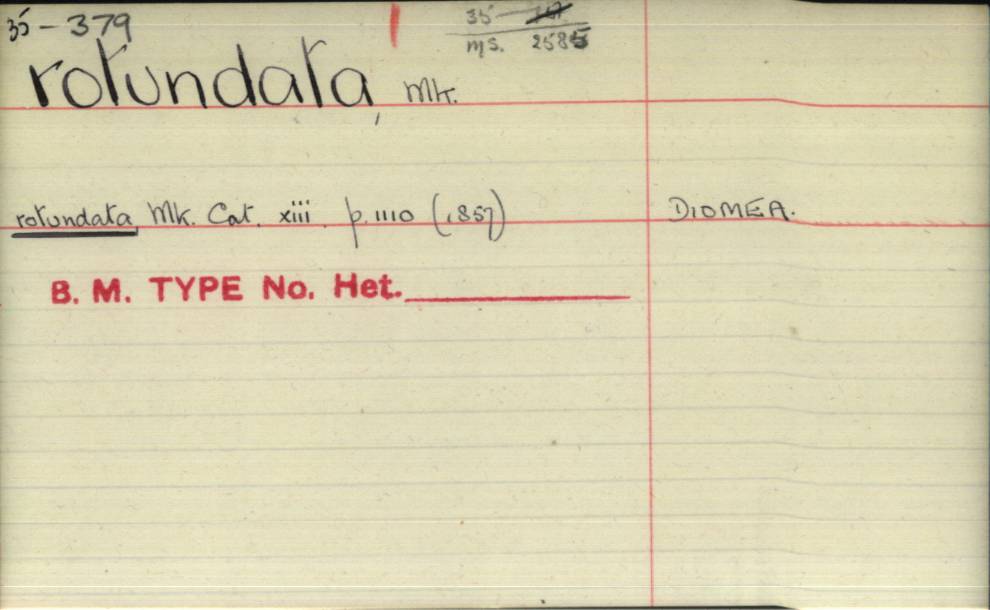 35 – 379
35 –
ms. 2585
rotundata, Mk.
rotundata Mk. Cat. xiii p. 1110 (1857) DIOMEA.
B. M. TYPE No. Het.